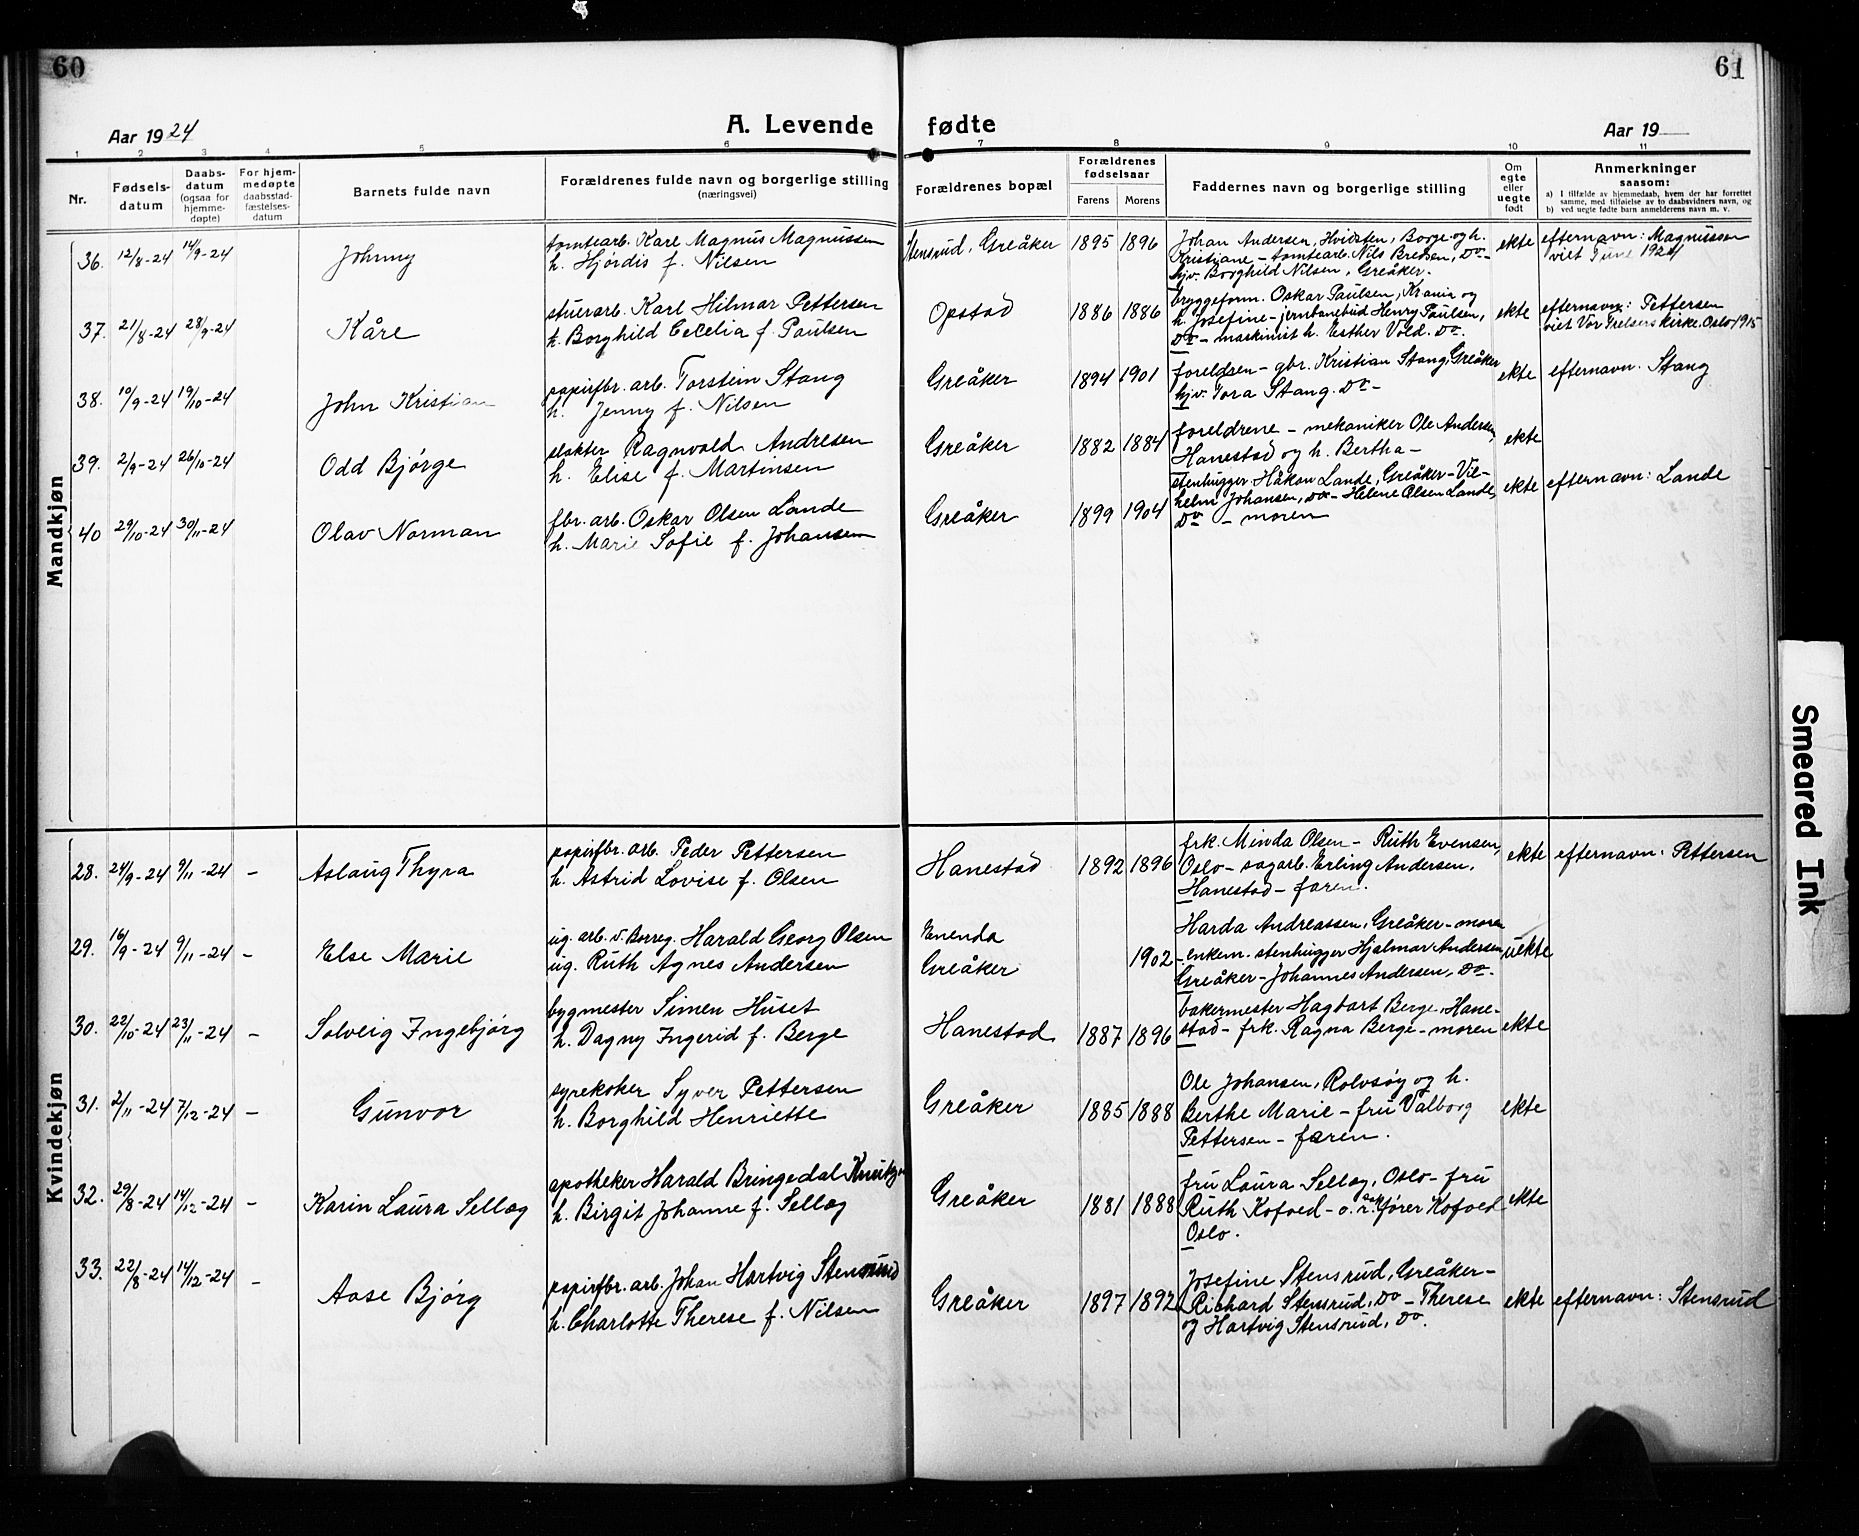 60
61
Aar 1924
A. Levende fødte
Aar 19
1 2 3 4 5 6 7 8 9 10 11
Nr.
Fødsels-
datum
Daabs-
datum
(ogsaa for
hjemme-
døpte)
For hjem-
medøpte
daabsstad-
fæstelses-
datum
Barnets fulde navn
Forældrenes fulde navn og borgerlige stilling
(næringsvei)
Forældrenes bopæl
Forældrenes
fødselsaar
Farens Morens
Faddernes navn og borgerlige stilling
Om
egte
eller
uegte
født
Anmerkninger
saasom:
a) I tilfælde av hjemmedaab, hvem der har forrettet
samme, med tilføielse av to daabsvidners navn, og
b) ved uegte fødte barn anmelderens navn m. v.
Mandkjøn
36. 12/8-24 14/9-24 Johnny
tomtearb. Karl Magnus Magnussen
h. Hjørdis f. Nilsen
Stensrud, Greåker 1895 1896
Johan Andersen, Hvidsten, Borge og h.
Kristiane - tomtearb. Nils Bredsen, Do -
hjv. Borghild Nilsen, Greåker.
ekte
efternavn: Magnussen
viet Tune 1924
37. 21/8-24 28/9-24 Kåre
stuerarb. Karl Hilmar Pettersen
h. Borghild Cecelia f. Paulsen
Opstad 1886 1886
bryggeform. Oskar Paulsen, Krania og
h. Josefine - jernbanebud Henry Paulsen,
Do - maskinist h. Esther Vold. Do.
ekte
efternavn: Pettersen
viet Vor Frelsers Kirke. Oslo 1915
38. 10/9-24 19/10-24 John Kristian
papirfbr. arb. Torstein Stang
h. Jenny f. Nilsen
Greåker 1894 1901
foreldren - gbr. Kristian Stang, Greåker
hjv. Tora Stang. Do -
ekte
efternavn. Stang
39. 2/9-24 26/10-24 Odd Bjørge
slakter Ragnvald Andresen
h. Elise f. Martinsen
Greåker 1882 1884
foreldrene - mekaniker Ole Andersen,
Hanestad og h. Bertha -
ekte
40 29/10-24 30/11-24 Olav Norman
fbr. arb. Oskar Olsen Lande
h. Marie Sofie f. Johansen
Greåker 1899 1904
stenhugger Håkon Lande, Greåker - Vil-
helm Johansen, Do - Helene Olsen Lande,
Do - moren
ekte
efternavn: Lande
Kvindekjøn
28. 24/9-24 9/11-24 - Aslaug Thyra
papirfbr. arb. Peder Pettersen
h. Astrid Lovise f. Olsen
Hanestad 1892 1896
frk. Minda Olsen - Ruth Evensen,
Oslo - sagarb. Erling Andersen,
Hanestad - faren.
ekte
efternavn: Pettersen
29. 16/9-24 9/11-24 - Else Marie
ug. arb. v. Borreg. Harald Georg Olsen
ug. Ruth Agnes Andersen
Enenda
Greåker 1902
Harda Andreassen, Greåker - moren
- enkem. stenhugger Hjalmar Andersen
Greåker - Johannes Andersen, Do.
uekte
30. 22/10-24 23/11-24 - Solveig Ingebjørg
bygmester Simen Huset
h. Dagny Ingerid f. Berge
Hanestad 1887 1896
bakermester Hagbart Berge, Hane-
stad - frk. Ragna Berge - moren
ekte
31. 2/11-24 7/12-24 - Gunvor
syrekoker Syver Pettersen
h. Borghild Henriette
Greåker 1885 1888
Ole Johansen, Rolvsøy og h.
Berthe Marie - fru Valborg
Pettersen - faren.
ekte
32. 29/8-24 14/12-24 - Karin Laura Sellæg
apotheker Harald Bringedal
h. Birgit Johanne f. Sellæg
Greåker 1881 1888
fru Laura Sellæg, Oslo - fru
Ruth Kofoed - o.r. sakfører Kofoed
Oslo.
ekte
33. 22/8-24 14/12-24 - Aase Bjørg
papirfbr. arb. Johan Hartvig Stensrud
h. Charlotte Therese f. Nilsen
Greåker 1897 1892
Josefine Stensrud, Greåker -
Richard Stensrud, Do - Therese
og Hartvig Stensrud, Do.
ekte
efternavn: Stensrud
Smeared Ink